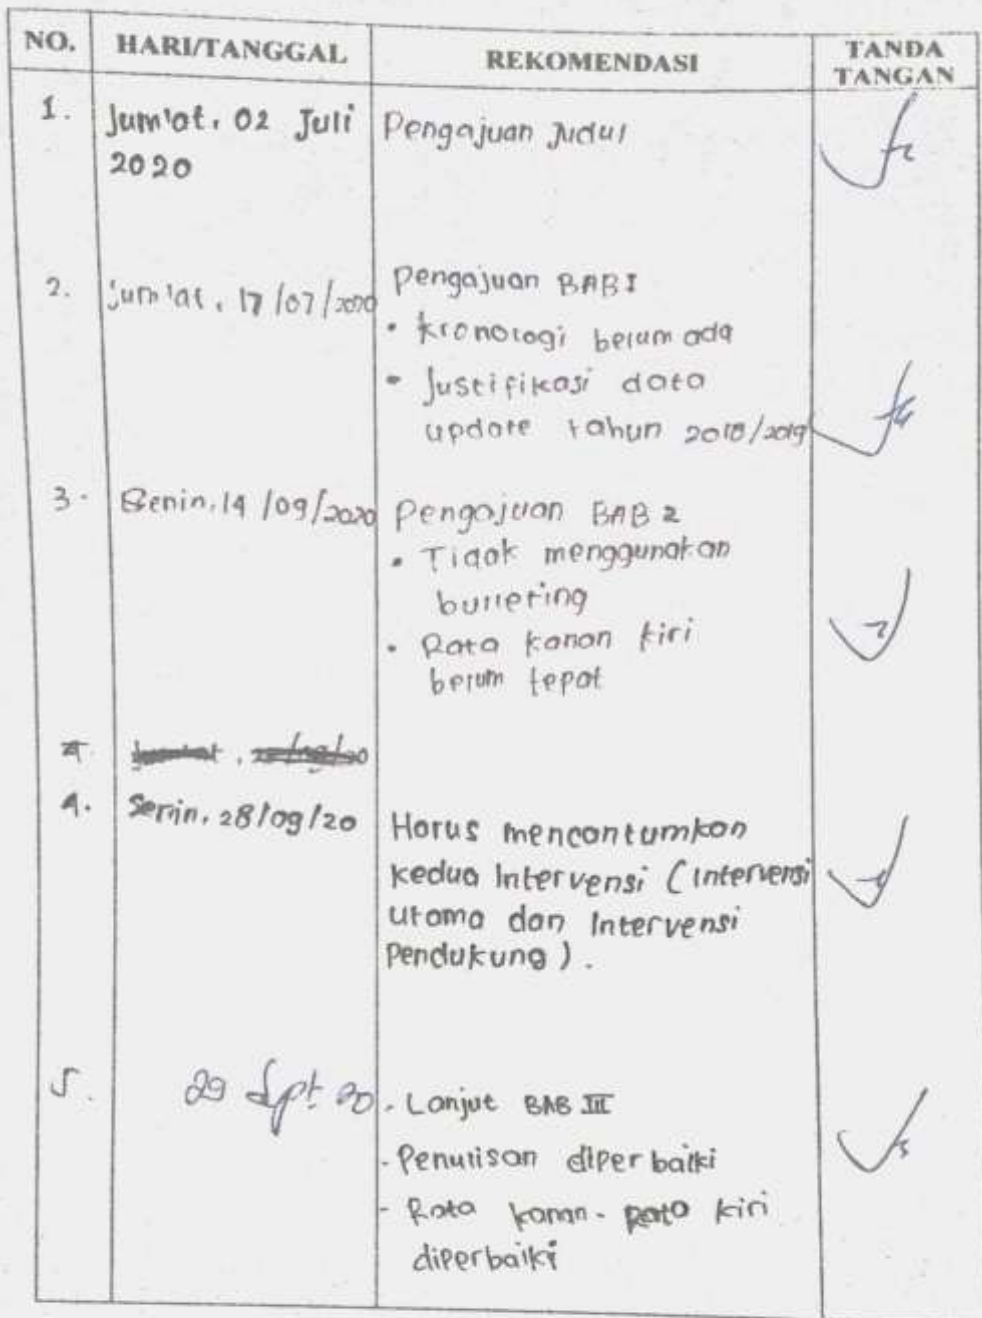 NO. HARI/TANGGAL REKOMENDASI TANDA TANGAN
1. Jum'at, 02 Juli 2020 Pengajuan Judul
2. Jum'at, 17/07/2020 Pengajuan BAB I
• Kronologi belum ada
• Justifikasi data
update tahun 2018/2019
3. Senin, 14/09/2020 Pengajuan BAB 2
• Tidak menggunakan
bulleting
• Rata kanan kiri
belum tepat
4. Senin, 28/09/20 Harus mencantumkan
kedua Intervensi (Intervensi
Utama dan Intervensi
Pendukung).
5. 29 Sept 20 - Lanjut BAB III
- Penulisan diperbaiki
- Rata kanan - rata kiri
diperbaiki